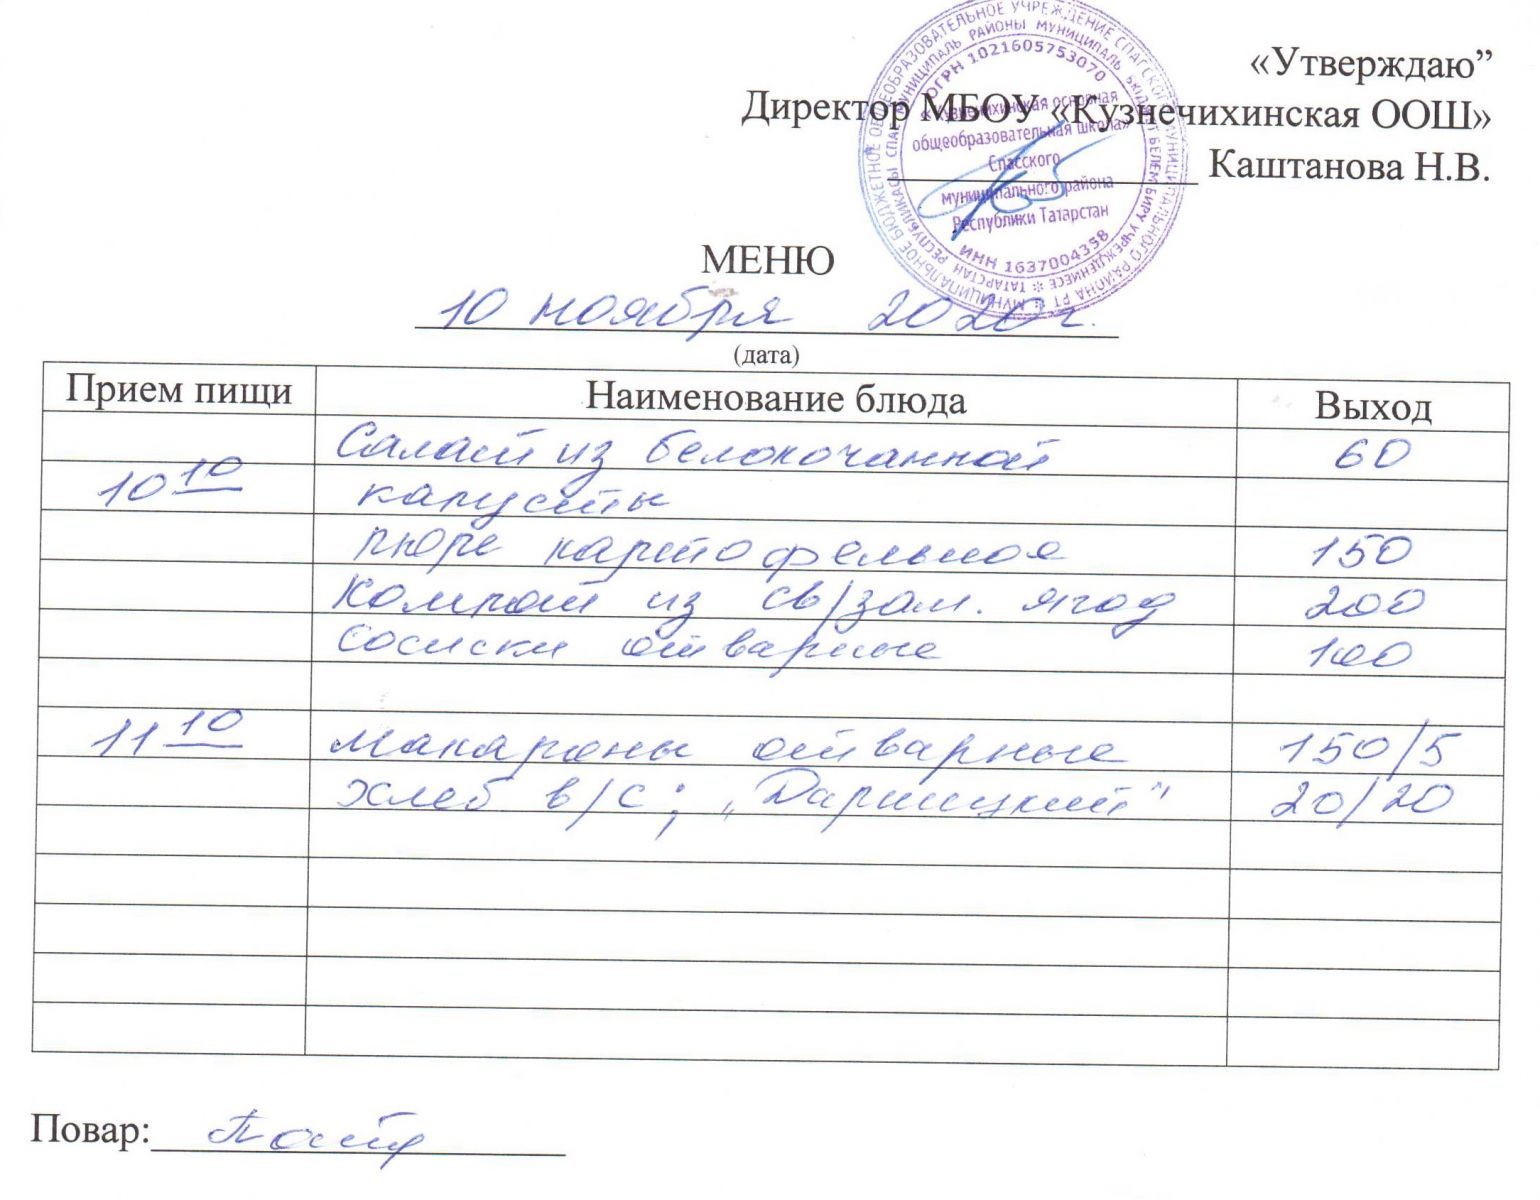 «Утверждаю”
Директор МБОУ «Кузнечихинская ООШ»
Каштанова Н.В.
МУНИЦИПАЛЬНОЕ БЮДЖЕТНОЕ ОБЩЕОБРАЗОВАТЕЛЬНОЕ УЧРЕЖДЕНИЕ СПАССКОГО МУНИЦИПАЛЬНОГО РАЙОНА РТ
ТАТАРСТАН РЕСПУБЛИКАСЫ СПАС МУНИЦИПАЛЬ РАЙОНЫ МУНИЦИПАЛЬ БЮДЖЕТ БЕЛЕМ БИРҮ УЧРЕЖДЕНИЕСЕ
ОГРН 1021605753070
«Кузнечихинская основная
общеобразовательная школа»
Спасского
муниципального района
Республики Татарстан
ИНН 1637004358
МЕНЮ
10 ноября 2020г.
(дата)
Прием пищи Наименование блюда Выход
Салат из белокочанной 60
10 10 капусты
пюре картофельное 150
Компот из св/зам. ягод 200
сосиски отварные 100
11 10 макароны отварные 150/5
хлеб в/с; „Дарницкий" 20/20
Повар: